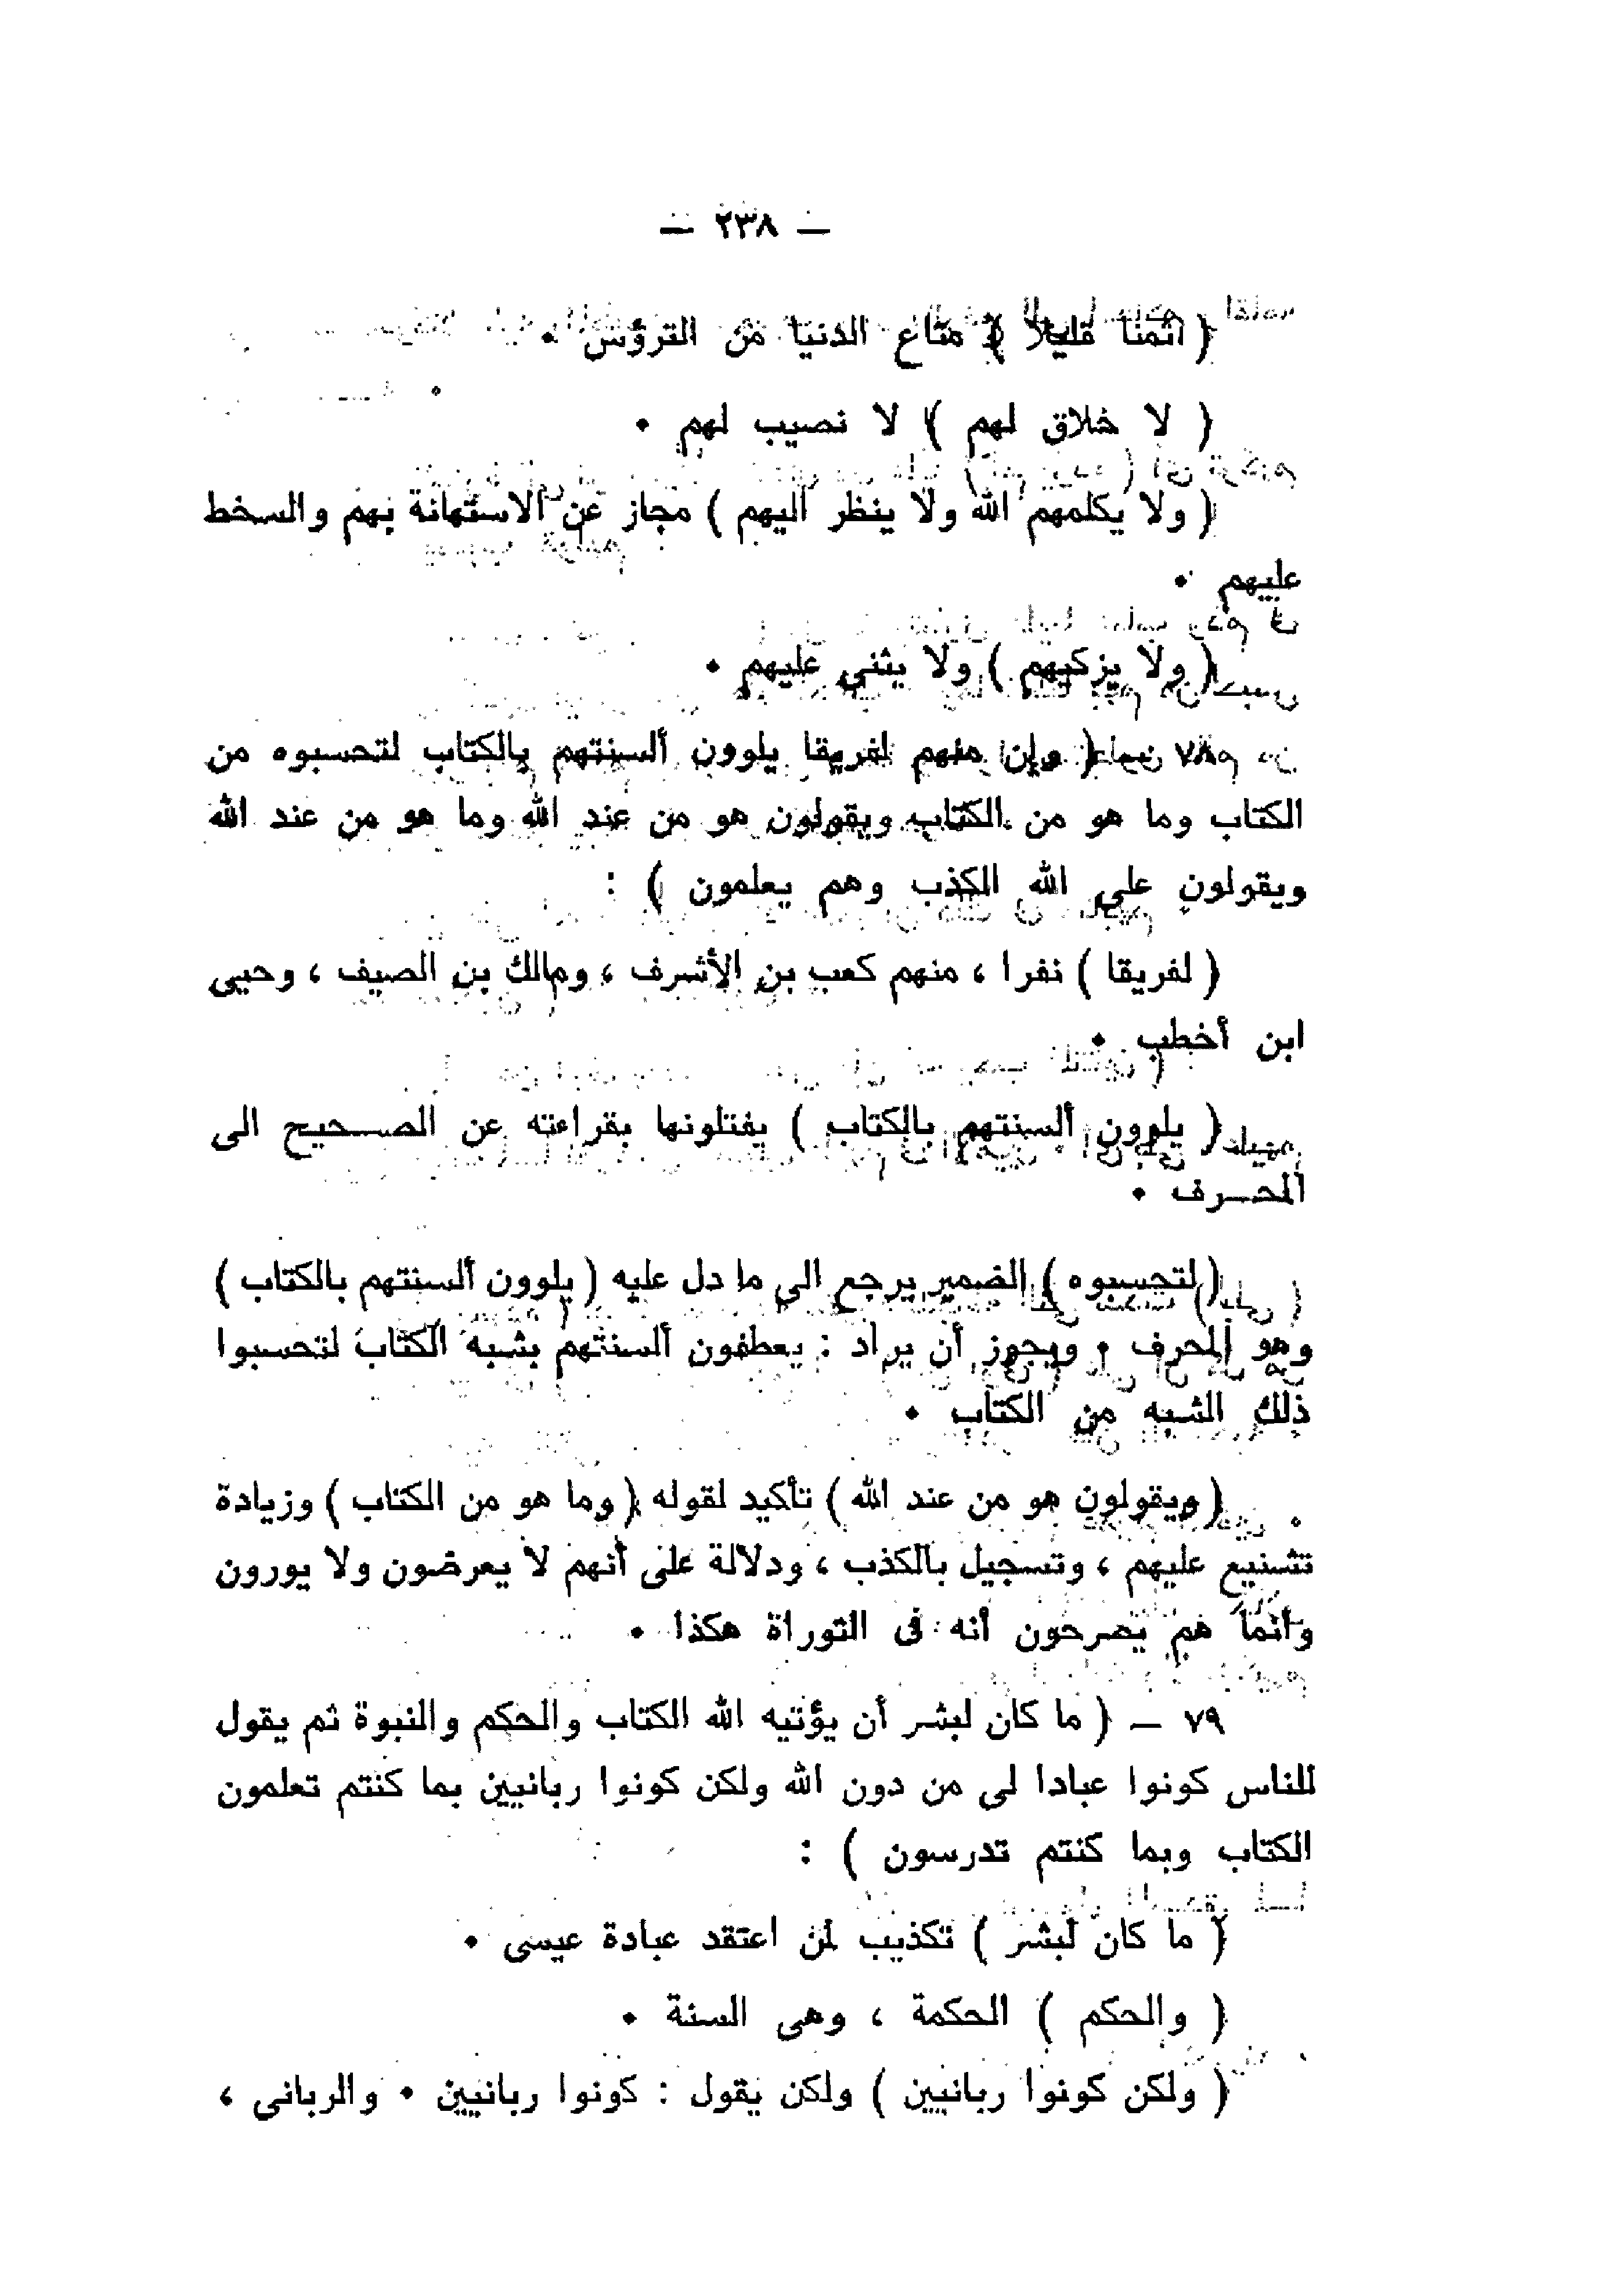 — ٢٣٨ —
( ثمنا قليلا ) متاع الدنيا من الترؤس .
( لا خلاق لهم ) لا نصيب لهم .
( ولا يكلمهم الله ولا ينظر اليهم ) مجاز عن الاستهانة بهم والسخط
عليهم .
( ولا يزكيهم ) ولا يثنى عليهم .
٧٨ — ( وإن منهم لفريقا يلوون ألسنتهم بالكتاب لتحسبوه من
الكتاب وما هو من الكتاب ويقولون هو من عند الله وما هو من عند الله
ويقولون على الله الكذب وهم يعلمون ) :
( لفريقا ) نفرا ، منهم كعب بن الأشرف ، ومالك بن الصيف ، وحيى
ابن أخطب .
( يلوون ألسنتهم بالكتاب ) يفتلونها بقراءته عن الصحيح الى
المحرف .
( لتحسبوه ) الضمير يرجع الى ما دل عليه ( يلوون ألسنتهم بالكتاب )
وهو المحرف . ويجوز أن يراد : يعطفون ألسنتهم بشبه الكتاب لتحسبوا
ذلك الشبه من الكتاب .
( ويقولون هو من عند الله ) تأكيد لقوله ( وما هو من الكتاب ) وزيادة
تشنيع عليهم ، وتسجيل بالكذب ، ودلالة على أنهم لا يعرضون ولا يورون
وانما هم يصرحون أنه فى التوراة هكذا .
٧٩ — ( ما كان لبشر أن يؤتيه الله الكتاب والحكم والنبوة ثم يقول
للناس كونوا عبادا لى من دون الله ولكن كونوا ربانيين بما كنتم تعلمون
الكتاب وبما كنتم تدرسون ) :
( ما كان لبشر ) تكذيب لمن اعتقد عبادة عيسى .
( والحكم ) الحكمة ، وهى السنة .
( ولكن كونوا ربانيين ) ولكن يقول : كونوا ربانيين . والربانى ،